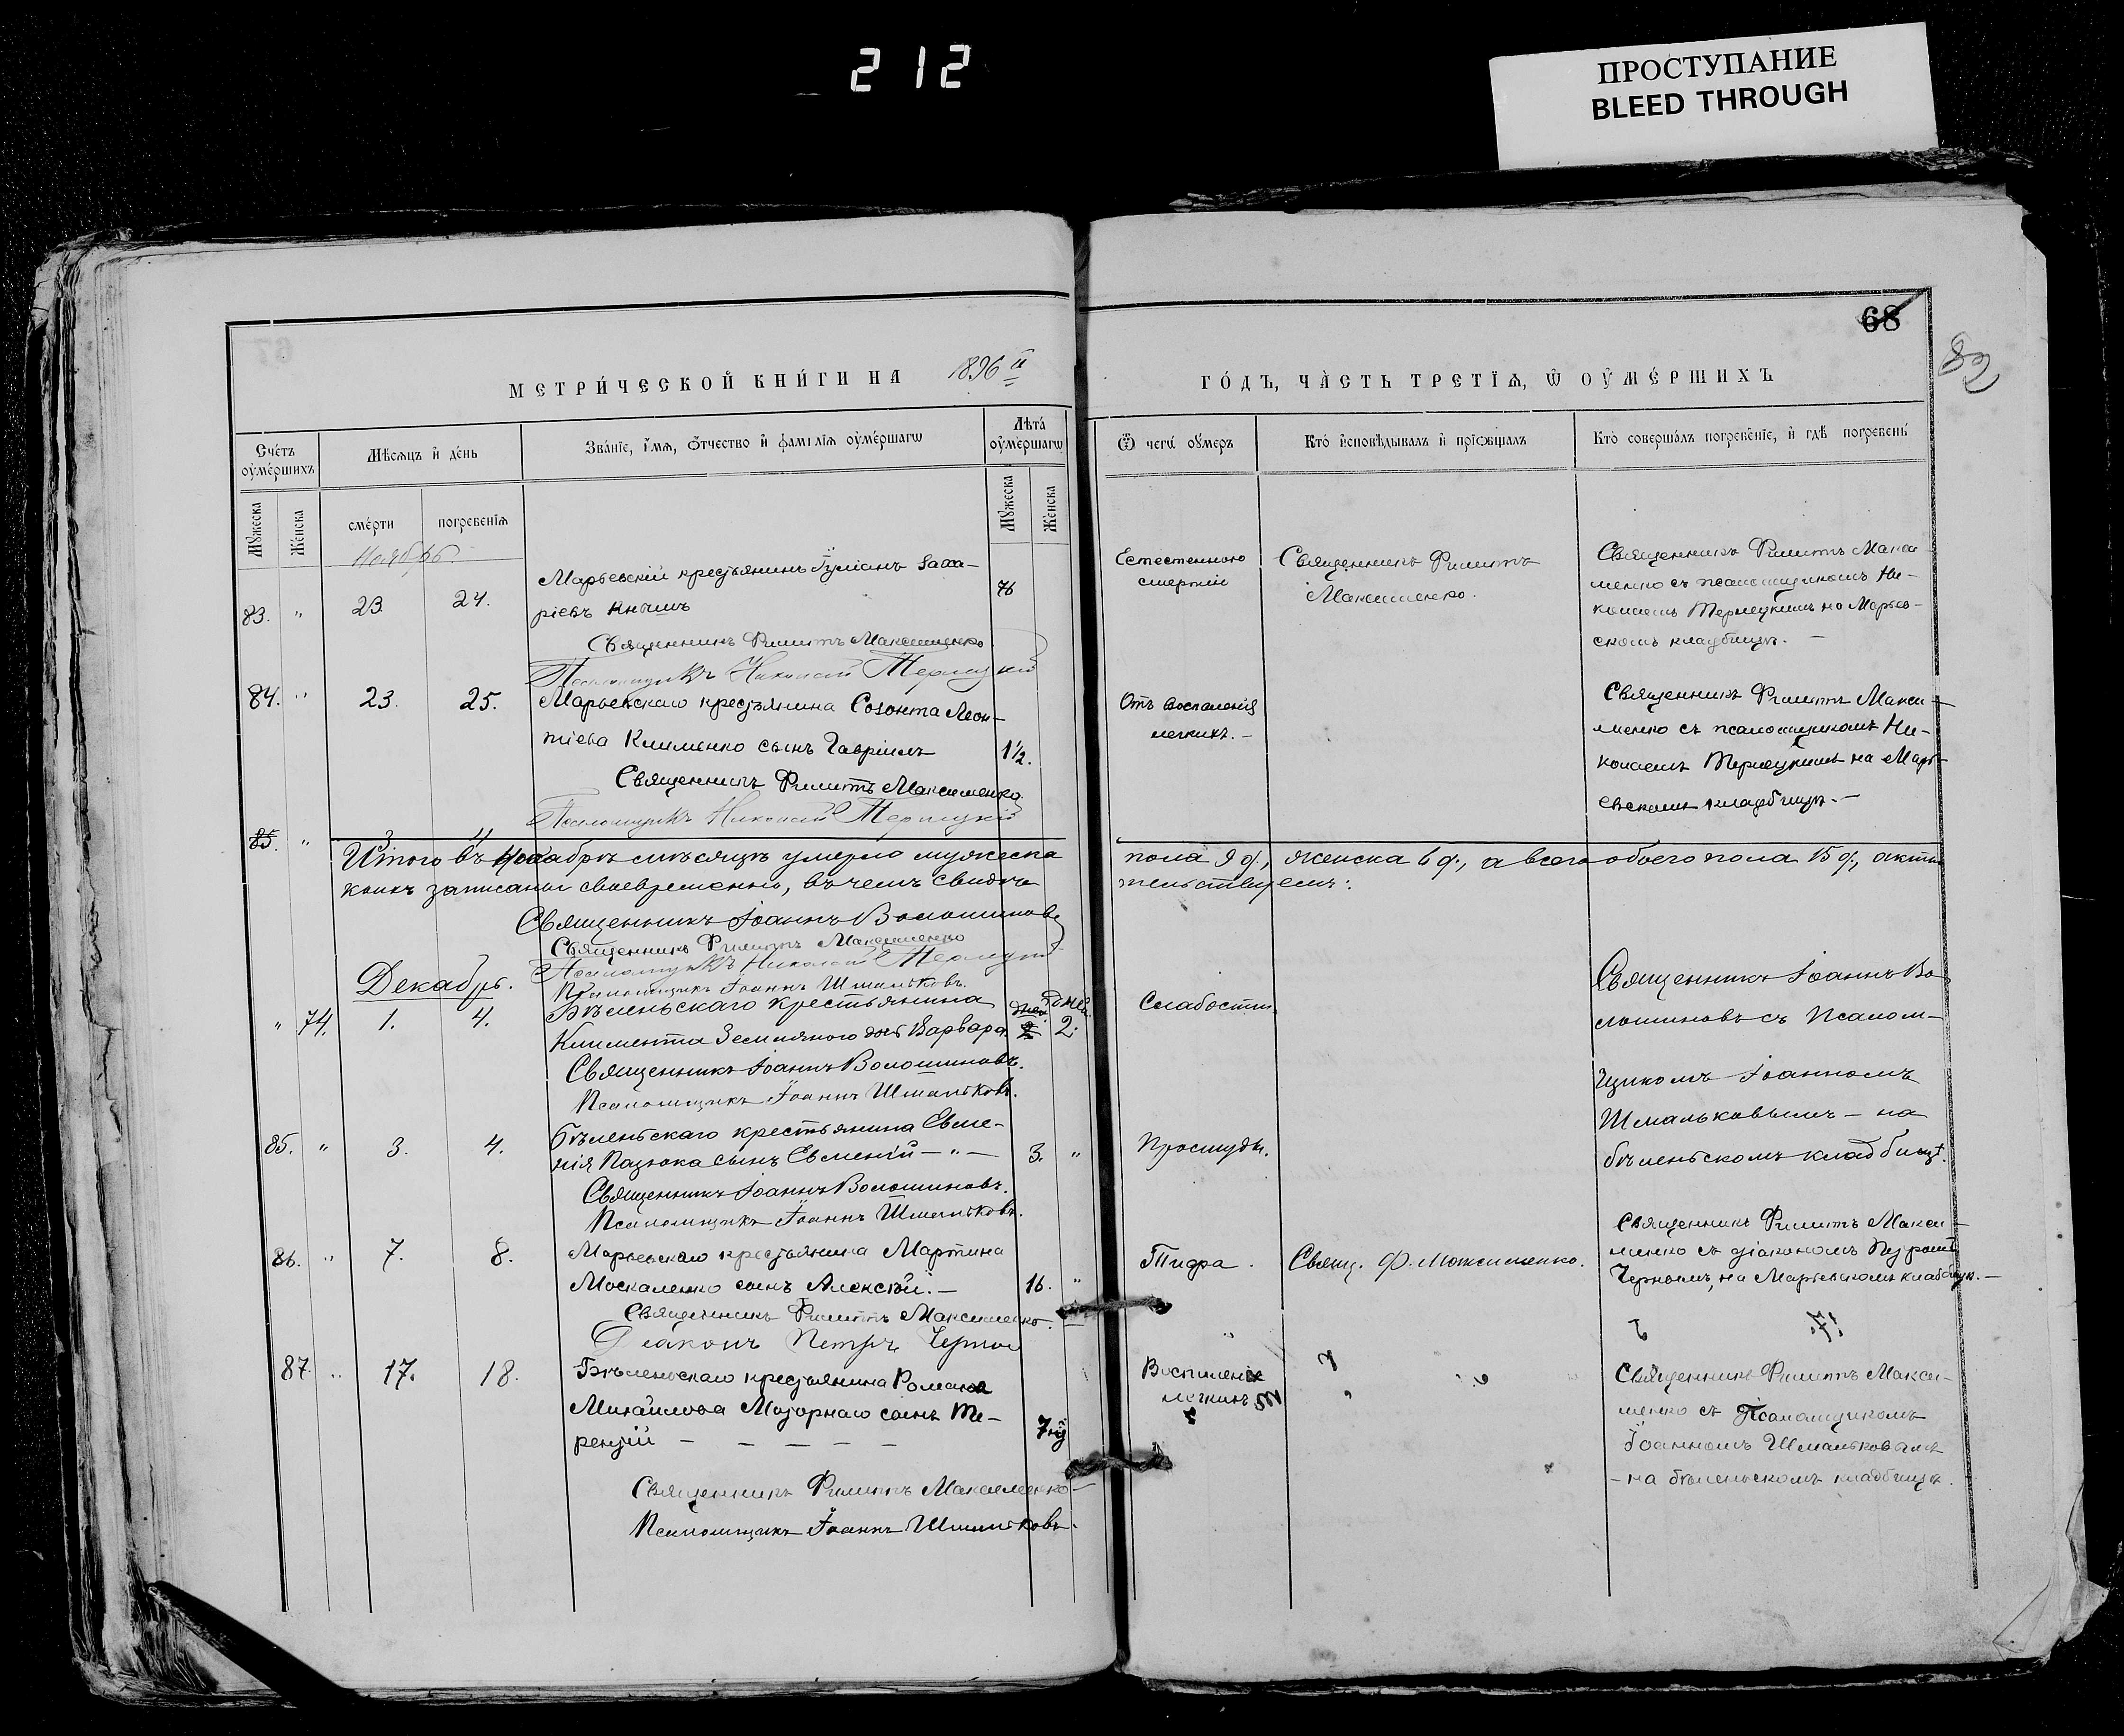 212
ПРОСТУПАНИЕ
BLEED THROUGH
68
82
МЕТРИ́ЧЕСКОЙ КНИ́ГИ НА 1896 й
ГО́ДЪ, ЧА̀СТЬ ТРЕТЇѦ, Ѿ ОУ҆МЕ́РШИХЪ
Сче́тъ оу҆ме́ршихъ
Мѣсѧцъ и҆ де́нь
Зва́нїе, и҆́мѧ, ѻ҆́тчество и҆ фамі́лїѧ оу҆ме́ршагѡ
Лѣта̀ оу҆ме́ршагѡ
Ѿ чегѡ̀ оу҆́меръ
Кто̀ и҆сповѣ́дывалъ и҆ прїѡбща́лъ
Кто̀ соверша́лъ погребе́нїе, и҆ гдѣ̀ погребены̀
Мꙋ́жеска
Же́нска
сме́рти
погребе́нїѧ
Мꙋ́жеска
Же́нска
Ноябрь
83. " 23 24.
Марьевскій крестьянинъ Іуліанъ Заха-
ріевъ Кнышъ
78
Священникъ Филиппъ Максименко
Псаломщикъ Николай Терлецкій
Естественною
смертію
Священникъ Филиппъ
Максименко.
Священникъ Филиппъ Макси-
менко съ псаломщикомъ Ни-
колаемъ Терлецкимъ на Марьев-
скомъ кладбищѣ. —
84. " 23. 25.
Марьевскаго крестьянина Созонта Леон-
тіева Клименко сынъ Гавріилъ
1½.
Священникъ Филиппъ Максименко
Псаломщикъ Николай Терлецкій
Отъ воспаленія
легкихъ. —
Священникъ Филиппъ Макси-
менко съ псаломщикомъ Ни-
колаемъ Терлецкимъ на Марь-
евскомъ кладбищѣ. —
85. "
Итого въ Ноябрѣ мѣсяцѣ умерло мужеска пола 9 д., женска 6 д., а всего обоего пола 15 д., акты
коихъ записаны своевременно, въ чемъ свидѣ- тельствуемъ:
Священникъ Іоаннъ Волошиновъ
Священникъ Филиппъ Максименко
Псаломщикъ Николай Терлецкій
Псаломщикъ Іоаннъ Шмальковъ.
Декабрь.
" 74. 1. 4.
Бѣленьскаго крестьянина
Климента Земляного дочь Варвара.
дней 2
дней. 2.
Священникъ Іоаннъ Волошиновъ.
Псаломщикъ Іоаннъ Шмальковъ.
Слабости.
Священникъ Іоаннъ Во-
лошиновъ съ Псалом-
щикомъ Іоанномъ
Шмальковымъ — на
бѣленьскомъ кладбищѣ.
85. " 3. 4.
Бѣленьскаго крестьянина Евме-
нія Пазюка сынъ Евменій — " —
3. "
Священникъ Іоаннъ Волошиновъ.
Псаломщикъ Іоаннъ Шмальковъ.
Простуды.
86. " 7. 8.
Марьевскаго крестьянина Мартина
Москаленко сынъ Алексѣй. —
16. "
Священникъ Филиппъ Максименко.
Діаконъ Петръ Черный
Тифа.
Свящ. Ф. Максименко.
Священникъ Филиппъ Макси-
менко съ діакономъ Петромъ
Чернымъ, на Марьевскомъ кладбищѣ. —
87. " 17. 18.
Бѣленьскаго крестьянина Романа
Михайлова Мозорнаго сынъ Те-
рентій — — — — —
Священникъ Филиппъ Максименко
Псаломщикъ Іоаннъ Шмальковъ.
Воспаленія
легкихъ
Священникъ Филиппъ Макси-
менко съ Псаломщикомъ
Іоанномъ Шмальковымъ
— на бѣленьскомъ кладбищѣ.